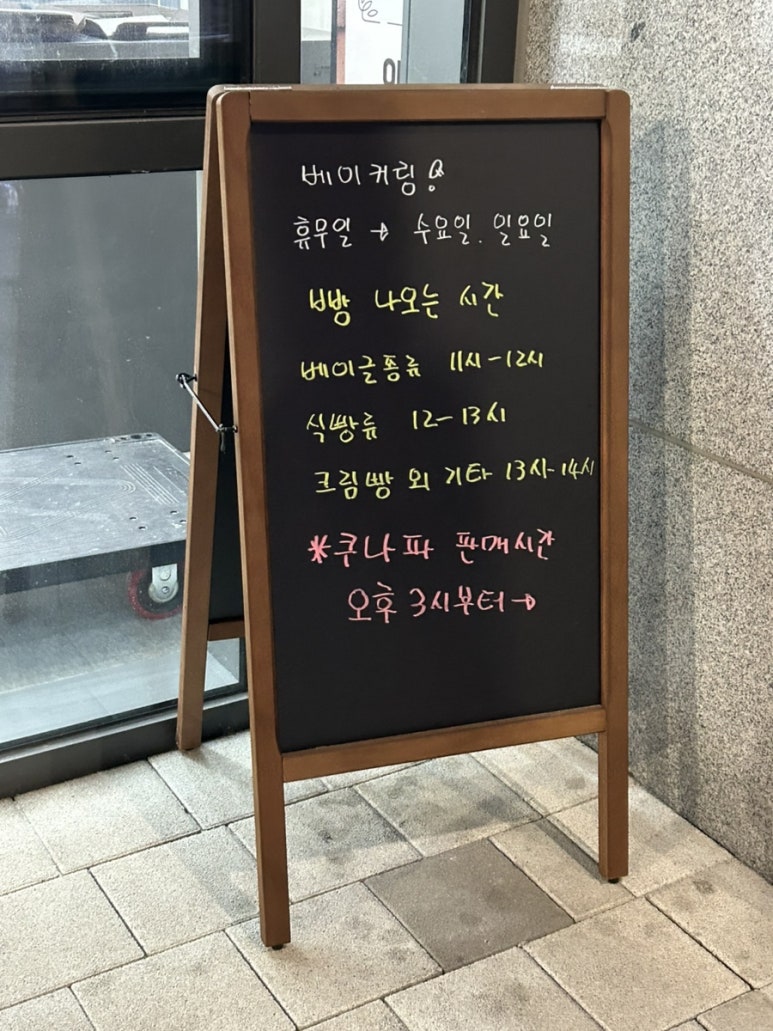 베이커링
휴무일 → 수요일. 일요일
빵 나오는 시간
베이글종류 11시-12시
식빵류 12-13시
크림빵 외 기타 13시-14시
*쿠나파 판매시간
오후 3시부터→